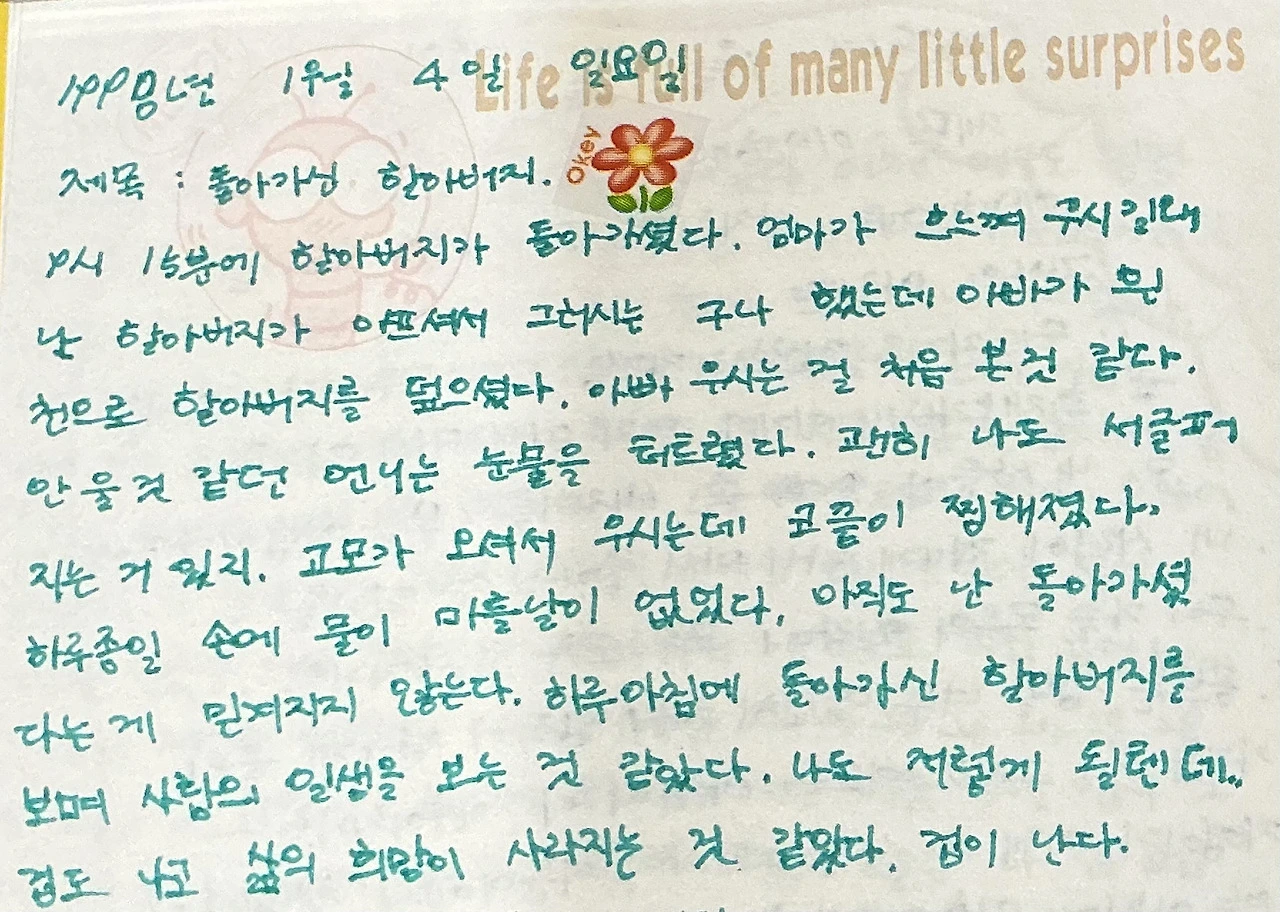 Life is full of many little surprises
1월 4일 일요일
Okey
제목 : 돌아가신 할아버지.
9시 15분에 할아버지가 돌아가셨다. 엄마가 흐느껴 우시길래
난 할아버지가 아프셔서 그러시는 구나 했는데 아빠가 흰
천으로 할아버지를 덮으셨다. 아빠 우시는 걸 처음 본것 같다.
안 울것 같던 언니는 눈물을 터트렸다. 괜히 나도 서글퍼
지는 거 있지. 고모가 오셔서 우시는데 코끝이 찡해졌다.
하루종일 손에 물이 마를날이 없었다. 아직도 난 돌아가셨
다는게 믿겨지지 않는다. 하루아침에 돌아가신 할아버지를
보며 사람의 일생을 보는 것 같았다. 나도 저렇게 될텐데..
겁도 나고 삶의 희망이 사라지는 것 같았다. 겁이 난다.